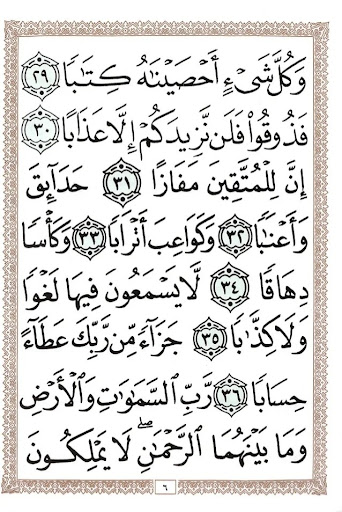 وَكُلَّ شَىْءٍ أَحْصَيْنَٰهُ كِتَٰبًا ٢٩
فَذُوقُوا۟ فَلَن نَّزِيدَكُمْ إِلَّا عَذَابًا ٣٠
إِنَّ لِلْمُتَّقِينَ مَفَازًا ٣١ حَدَآئِقَ
وَأَعْنَٰبًا ٣٢ وَكَوَاعِبَ أَتْرَابًا ٣٣ وَكَأْسًا
دِهَاقًا ٣٤ لَّا يَسْمَعُونَ فِيهَا لَغْوًا
وَلَا كِذَّٰبًا ٣٥ جَزَآءً مِّن رَّبِّكَ عَطَآءً
حِسَابًا ٣٦ رَّبِّ ٱلسَّمَٰوَٰتِ وَٱلْأَرْضِ
وَمَا بَيْنَهُمَا ٱلرَّحْمَٰنِ ۖ لَا يَمْلِكُونَ
٦